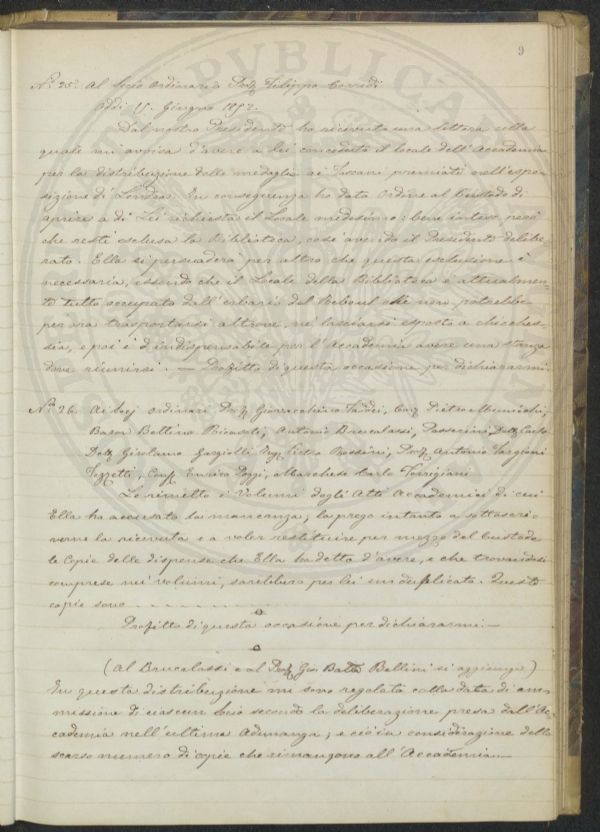 9
N.º 25.º Al Socio Ordinario Prof. Filippo Corridi
Addì 15. Giugno 1852.
Dal nostro Presidente ho ricevuta una lettera colla
quale mi avvisa d'avere a lei conceduto il locale dell'Accademia
per la distribuzione delle medaglie ai Toscani premiati nell'espo-
sizione di Londra. In conseguenza ho dato ordine al Custode di
aprire a di Lei richiesta il Locale medesimo; bene inteso però
che resti esclusa la Biblioteca, così avendo il Presidente delibe-
rato. Ella si persuaderà per altro che questa esclusione è
necessaria, essendo che il Locale della Biblioteca è attualmen-
te tutto occupato dall'erbario del Reboul che non potrebbe
per ora trasportarsi altrove, nè lasciarsi esposto a chicches-
sia, e poi è d'indispensabile per l'Accademia avere una stanza
dove riunirsi. — Profitto di questa occasione per dichiararmi
N.º 26. Ai Socj Ordinari Prof. Gioacchino Taddei, Cav. Pietro
Baron Bettino Ricasoli, Antonio Brucalassi, Passerini, Dott. Carlo
Dott. Girolamo Gargiolli, Ing. Pietro Rossini, Prof. Antonio Targioni
Tozzetti, Enrico Poggi, Marchese Carlo Torrigiani
Le rimetto i Volumi degli Atti Accademici di cui
Ella ha accusato la mancanza; la prego intanto a sottoscri-
verne la ricevuta e a voler restituire per mezzo del Custode
le Copie delle dispense che Ella ha detto d'avere, e che trovandosi
comprese nei volumi, sarebbero per lei un duplicato. Queste
copie sono - - - - - - - - - -
Profitto di questa occasione per dichiararmi —
(Al Brucalassi e al Prof. Gio. Batta Bellini si aggiunge)
In questa distribuzione mi sono regolato colla data di am-
missione di ciascun Socio secondo la deliberazione presa dall'Ac-
cademia nell'ultima Adunanza; e ciò in considerazione dello
scarso numero di copie che rimangono all'Accademia —